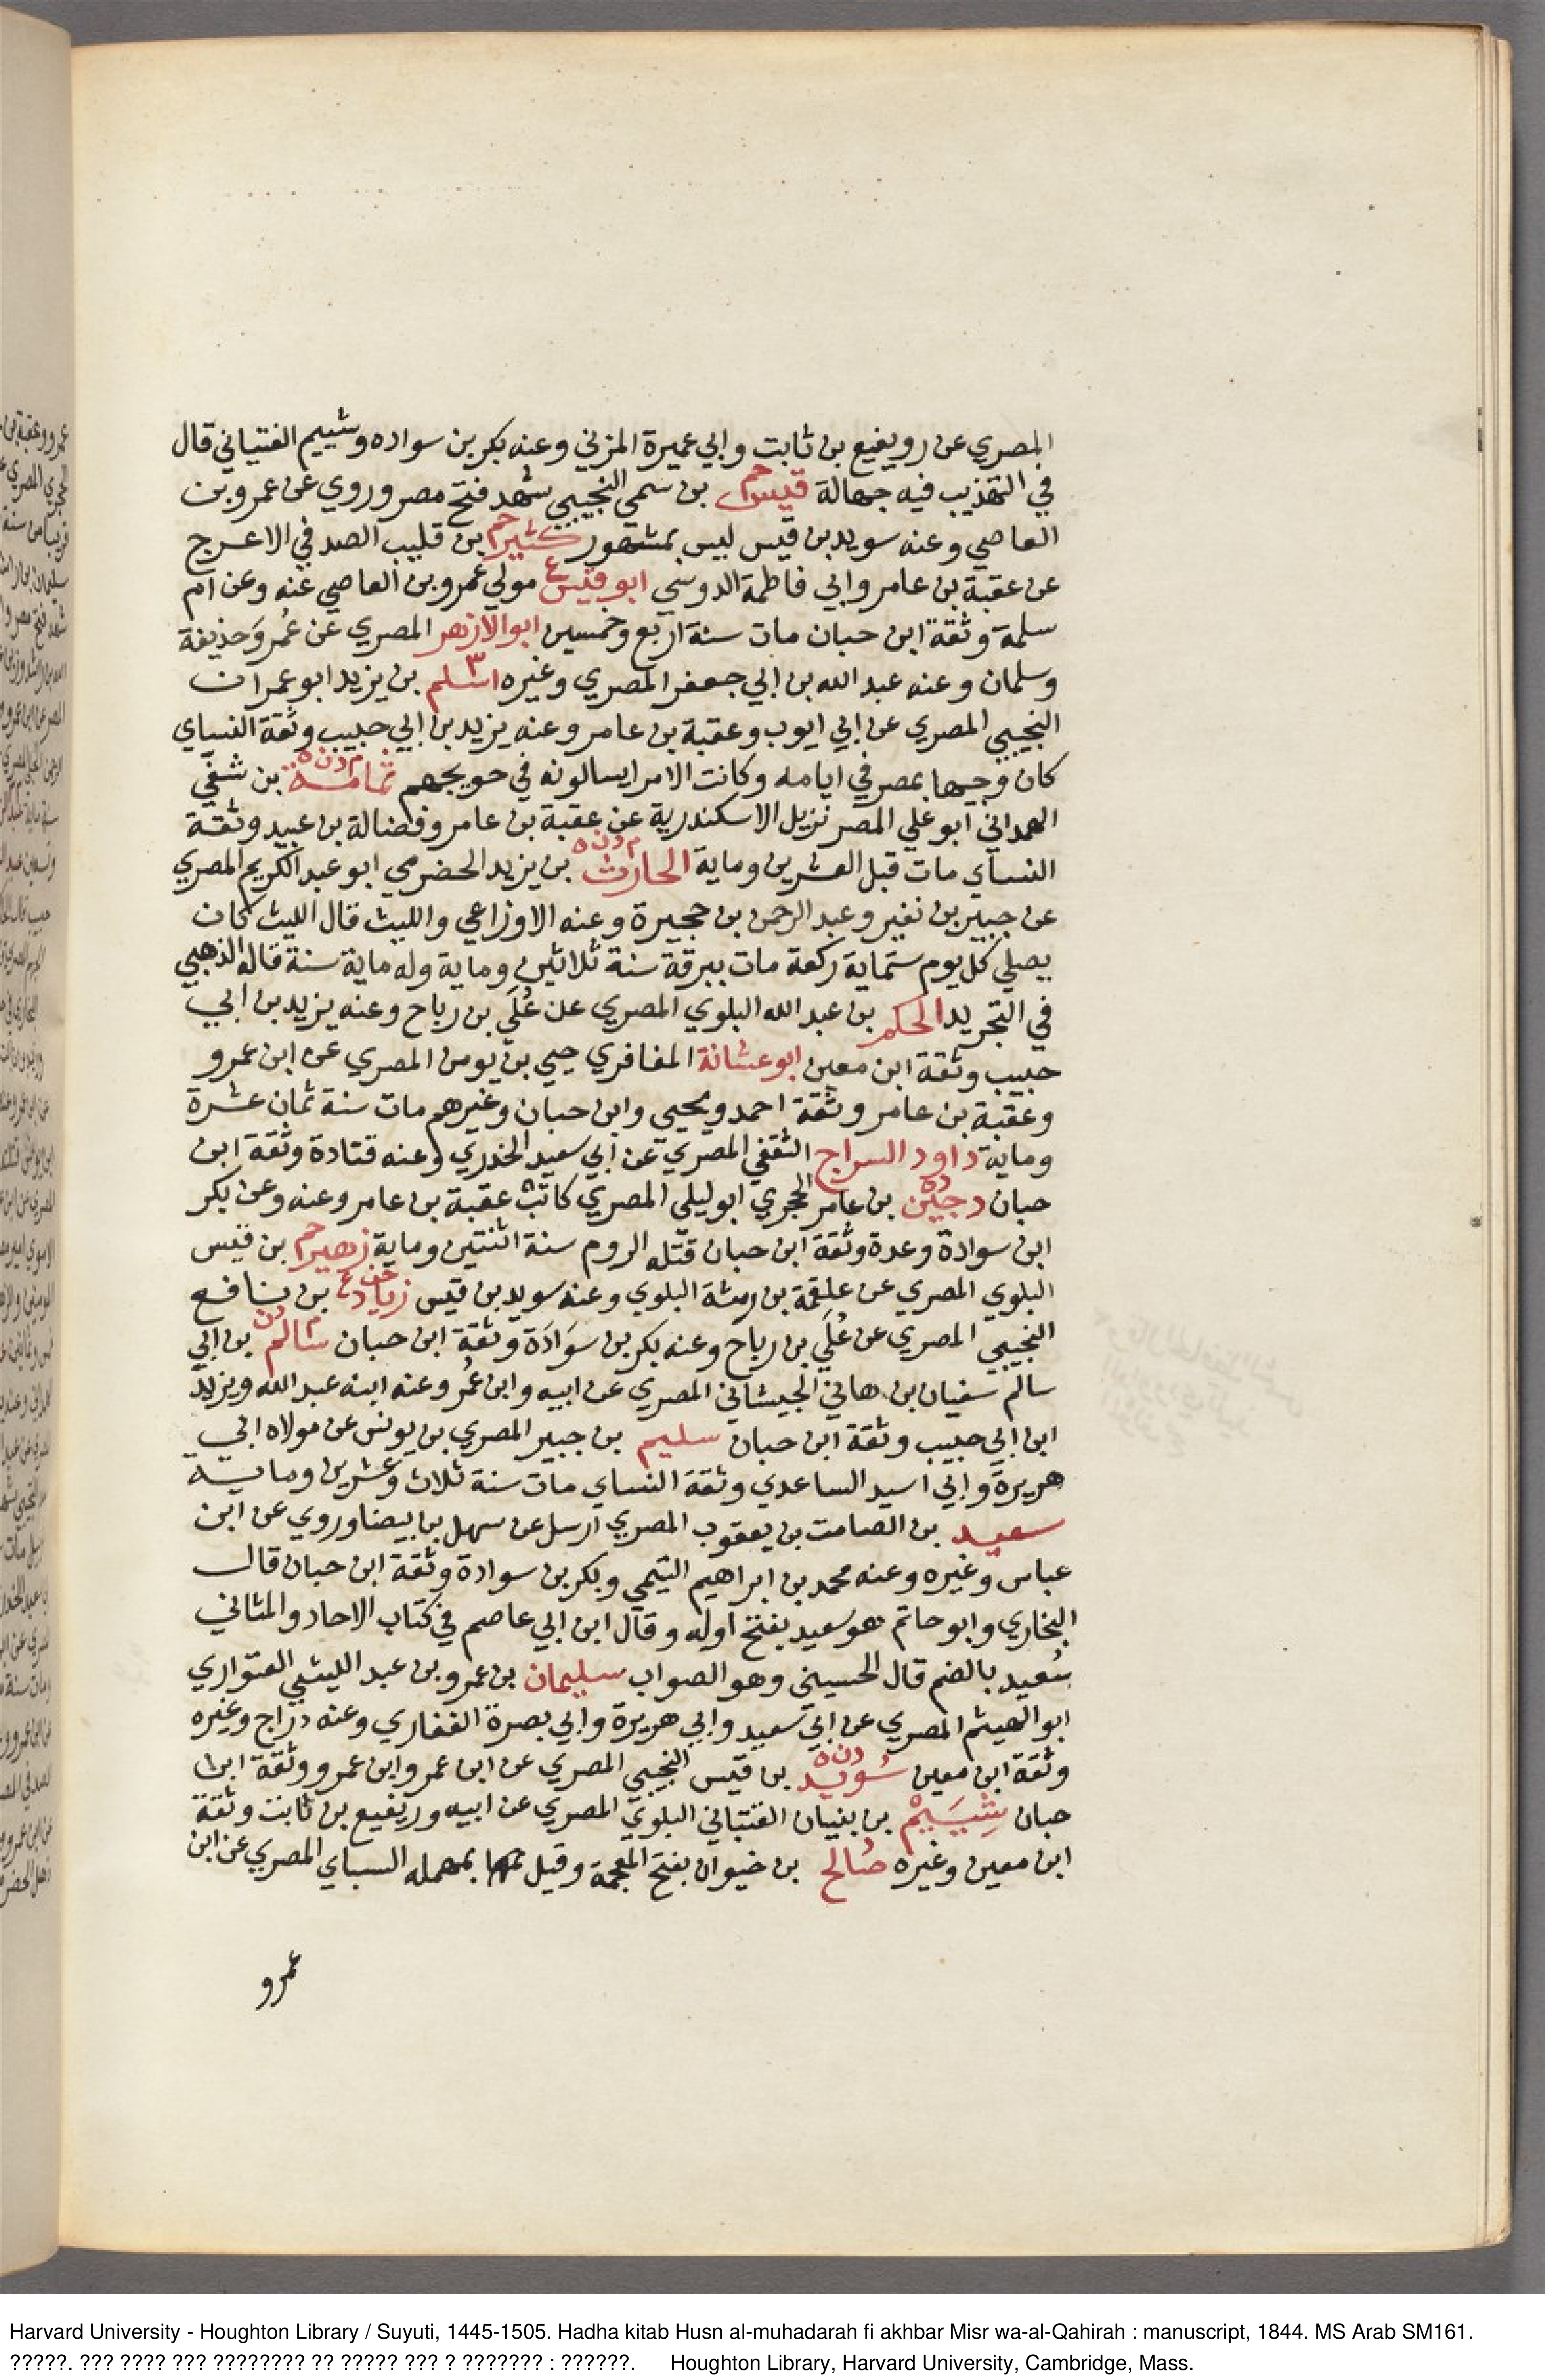 المصري عن رويفيع بن ثابت وابي عميرة المزني وعنه بكر بن سواده وشييم الفتياني قال
في التهذيب فيه جهالة قيس حم بن سمي التجيبي شهد فتح مصر وروي عن عمرو بن
العاصي وعنه سويد بن قيس ليس بمشهور كثير حم بن قليب الصدفي الاعرج
عن عقبة بن عامر وابي فاطمة الدوسي ابو قيس ع مولي عمرو بن العاصي عنه وعن ام
سلمة وثقة ابن حبان مات سنة اربع وخمسين ابو الازهر المصري عن عُمر وَحذيفة
وسلمان وعنه عبد الله بن ابي جعفر المصري وغيره اسلم ٣ بن يزيد ابو عمران
التجيبي المصري عن ابي ايوب وعقبة بن عامر وعنه يزيد بن ابي حبيب وثقة النساي
كان وجيها بمصر في ايامه وكانت الامرا يسالونه في حويجهم ثمامة م دن ه بن شفي
الهمداني ابو علي المصر نزيل الاسكندرية عن عقبة بن عامر وفضالة بن عبيد وثقة
النساي مات قبل العشرين وماية الحارث م دن ه بن يزيد الحضرمي ابو عبد الكريم المصري
عن جبير بن نفير وعبد الرحمن بن حجيرة وعنه الاوزاعي والليث قال الليث كان
يصلي كل يوم ستماية ركعة مات ببرقة سنة ثلاثين وماية وله ماية سنة قاله الذهبي
في التجريد الحكم بن عبد الله البلوي المصري عن عُلَي بن رباح وعنه يزيد بن ابي
حبيب وثقة ابن معين ابو عشانة المغافري حيي بن يومن المصري عن ابن عمرو
وعقبة بن عامر وثقة احمد ويحيي وابن حبان وغيرهم مات سنة ثمان عشرة
وماية داود السراج الثقفي المصري عن ابي سعيد الخدري وعنه قتادة وثقة ابن
حبان دجين ده بن عامر الحجري ابو ليلى المصري كاتب عقبة بن عامر وعنه وعن بكر
ابن سوادة وعدة وثقة ابن حبان قتله الروم سنة اثنتين وماية زهير حم بن قيس
البلوي المصري عن علقمة بن رمثة البلوي وعنه سويد بن قيس زياد بن نافع
التجيبي المصري عن عُلَي بن رباح وعنه بكر بن سَوَادَة وثقة ابن حبان سالم م دن بن ابي
سالم سفيان بن هاني الجيشاني المصري عن ابيه وابن عُمر وعنه ابنه عبد الله ويزيد
ابن ابي حبيب وثقة ابن حبان سليم بن جبير المصري بن يونس عن مولاه ابي
هريرة وابي اسيد الساعدي وثقة النساي مات سنة ثلاث وعشرين وماية
سعيد بن الصامت بن يعقوب المصري ارسل عن سهل بن بيضا وروي عن ابن
عباس وغيره وعنه محمد بن ابراهيم التيمي وبكر بن سوادة وثقة ابن حبان قال
البخاري وابو حاتم هو سعيد بفتح اوله وقال ابن ابي عاصم في كتاب الاحاد والمثاني
سُعيد بالضم قال الحسيني وهو الصواب سليمان بن عمرو بن عبد الليثي العتواري
ابو الهيثم المصري عن ابي سعيد وابي هريرة وابي بصرة الغفاري وعنه دراج وغيره
وثقة ابن معين سُويد دن ه بن قيس التجيبي المصري عن ابن عمر وابن عمرو وثقة ابن
حبان شِيَيْم بن بنيان القتباني البلوي المصري عن ابيه وريفيع بن ثابت وثقة
ابن معين وغيره صالح بن خيوان بفتح المعجمة وقيل بمهمله السباي المصري عن ابن
عمرو
Harvard University - Houghton Library / Suyuti, 1445-1505. Hadha kitab Husn al-muhadarah fi akhbar Misr wa-al-Qahirah : manuscript, 1844. MS Arab SM161.
?????. ??? ???? ??? ???????? ?? ????? ??? ? ??????? : ??????. Houghton Library, Harvard University, Cambridge, Mass.